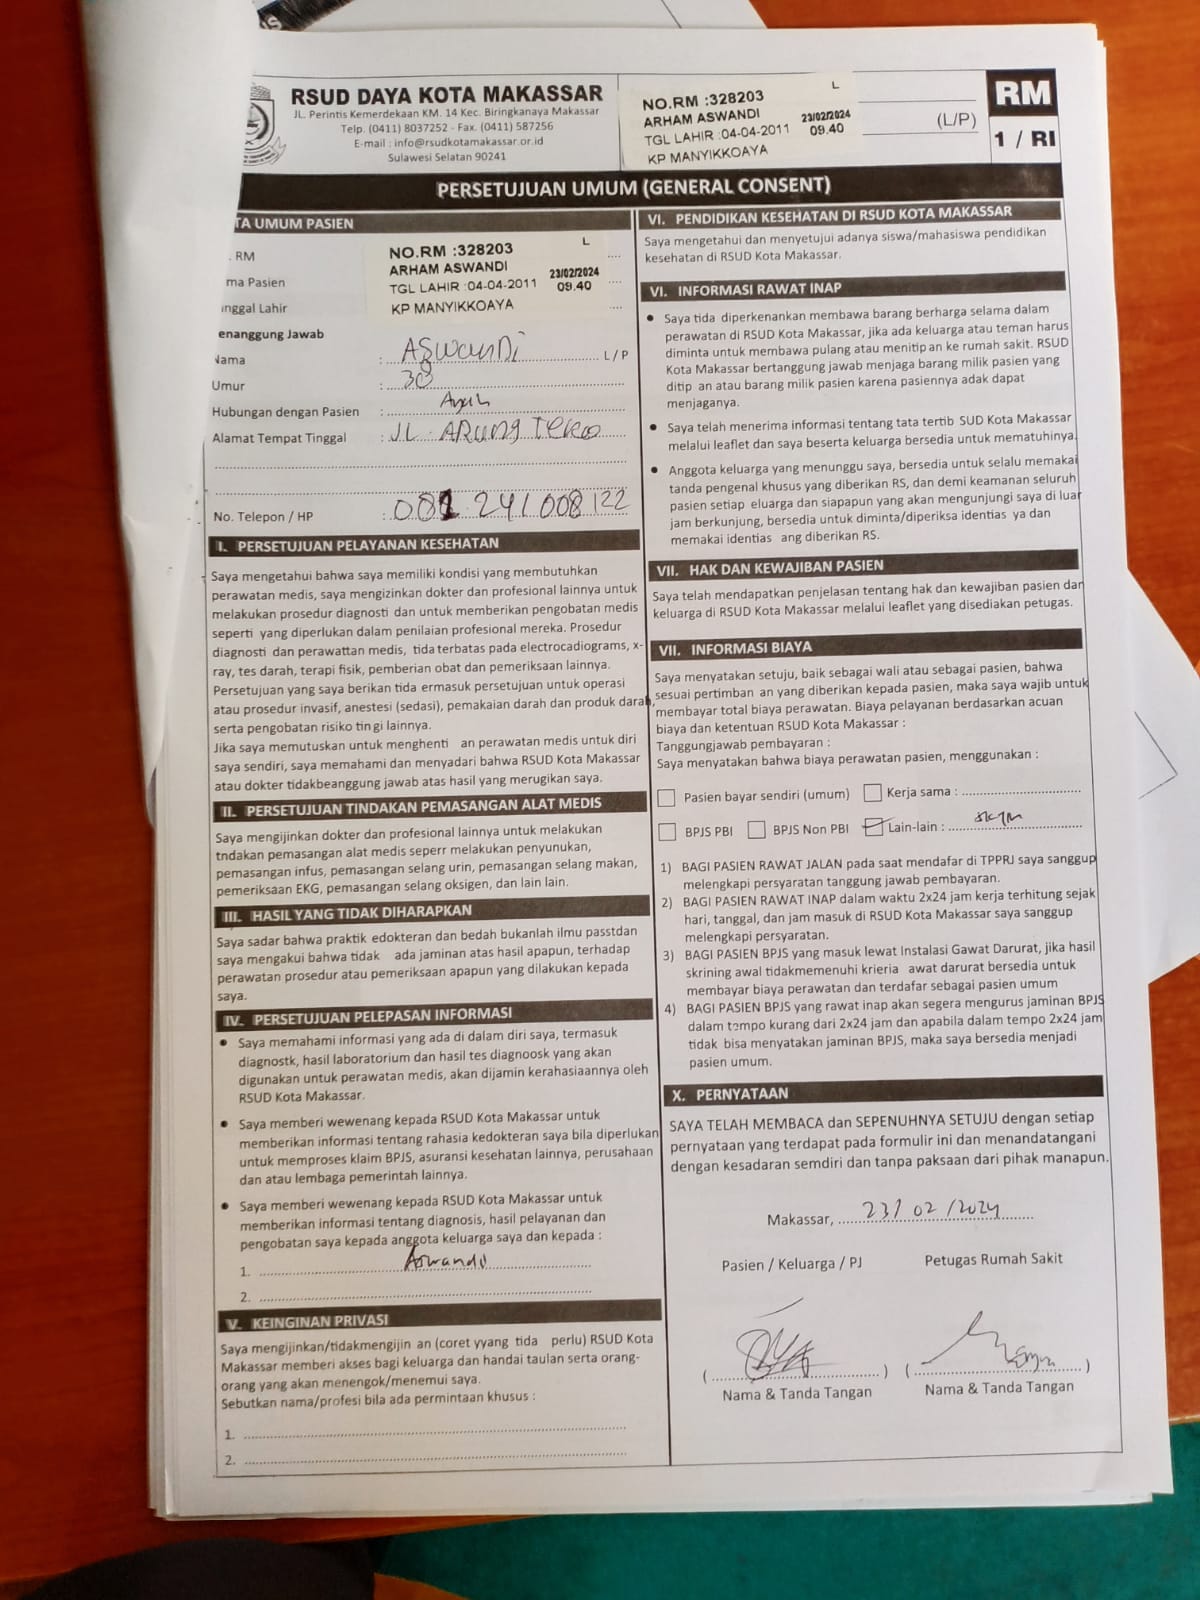 RSUD DAYA KOTA MAKASSAR
JL. Perintis Kemerdekaan KM. 14 Kec. Biringkanaya Makassar
Telp. (0411) 8037252 - Fax. (0411) 587256
E-mail : info@rsudkotamakassar.or.id
Sulawesi Selatan 90241
L
NO.RM :328203
ARHAM ASWANDI 23/02/2024
TGL LAHIR :04-04-2011 09.40
KP MANYIKKOAYA
(L/P)
RM
1 / RI
PERSETUJUAN UMUM (GENERAL CONSENT)
TA UMUM PASIEN
. RM
ma Pasien
nggal Lahir
L
NO.RM :328203
ARHAM ASWANDI 23/02/2024
TGL LAHIR :04-04-2011 09.40
KP MANYIKKOAYA
enanggung Jawab
Nama : ASWANDI L/P
Umur : 38
Hubungan dengan Pasien : Ayah
Alamat Tempat Tinggal : JL. ARUNG TEKO
No. Telepon / HP : 081 241008122
I. PERSETUJUAN PELAYANAN KESEHATAN
Saya mengetahui bahwa saya memiliki kondisi yang membutuhkan
perawatan medis, saya mengizinkan dokter dan profesional lainnya untuk
melakukan prosedur diagnosti dan untuk memberikan pengobatan medis
seperti yang diperlukan dalam penilaian profesional mereka. Prosedur
diagnosti dan perawattan medis, tida terbatas pada electrocadiograms, x-
ray, tes darah, terapi fisik, pemberian obat dan pemeriksaan lainnya.
Persetujuan yang saya berikan tida ermasuk persetujuan untuk operasi
atau prosedur invasif, anestesi (sedasi), pemakaian darah dan produk darah,
serta pengobatan risiko tin gi lainnya.
Jika saya memutuskan untuk menghenti an perawatan medis untuk diri
saya sendiri, saya memahami dan menyadari bahwa RSUD Kota Makassar
atau dokter tidakbeanggung jawab atas hasil yang merugikan saya.
II. PERSETUJUAN TINDAKAN PEMASANGAN ALAT MEDIS
Saya mengijinkan dokter dan profesional lainnya untuk melakukan
tndakan pemasangan alat medis seperr melakukan penyunukan,
pemasangan infus, pemasangan selang urin, pemasangan selang makan,
pemeriksaan EKG, pemasangan selang oksigen, dan lain lain.
III. HASIL YANG TIDAK DIHARAPKAN
Saya sadar bahwa praktik edokteran dan bedah bukanlah ilmu passtdan
saya mengakui bahwa tidak ada jaminan atas hasil apapun, terhadap
perawatan prosedur atau pemeriksaan apapun yang dilakukan kepada
saya.
IV. PERSETUJUAN PELEPASAN INFORMASI
• Saya memahami informasi yang ada di dalam diri saya, termasuk
diagnostk, hasil laboratorium dan hasil tes diagnoosk yang akan
digunakan untuk perawatan medis, akan dijamin kerahasiaannya oleh
RSUD Kota Makassar.
• Saya memberi wewenang kepada RSUD Kota Makassar untuk
memberikan informasi tentang rahasia kedokteran saya bila diperlukan
untuk memproses klaim BPJS, asuransi kesehatan lainnya, perusahaan
dan atau lembaga pemerintah lainnya.
• Saya memberi wewenang kepada RSUD Kota Makassar untuk
memberikan informasi tentang diagnosis, hasil pelayanan dan
pengobatan saya kepada anggota keluarga saya dan kepada :
1. Aswandi
2.
V. KEINGINAN PRIVASI
Saya mengijinkan/tidakmengijin an (coret yyang tida perlu) RSUD Kota
Makassar memberi akses bagi keluarga dan handai taulan serta orang-
orang yang akan menengok/menemui saya.
Sebutkan nama/profesi bila ada permintaan khusus :
1.
2.
VI. PENDIDIKAN KESEHATAN DI RSUD KOTA MAKASSAR
Saya mengetahui dan menyetujui adanya siswa/mahasiswa pendidikan
kesehatan di RSUD Kota Makassar.
VI. INFORMASI RAWAT INAP
• Saya tida diperkenankan membawa barang berharga selama dalam
perawatan di RSUD Kota Makassar, jika ada keluarga atau teman harus
diminta untuk membawa pulang atau menitip an ke rumah sakit. RSUD
Kota Makassar bertanggung jawab menjaga barang milik pasien yang
ditip an atau barang milik pasien karena pasiennya adak dapat
menjaganya.
• Saya telah menerima informasi tentang tata tertib SUD Kota Makassar
melalui leaflet dan saya beserta keluarga bersedia untuk mematuhinya.
• Anggota keluarga yang menunggu saya, bersedia untuk selalu memakai
tanda pengenal khusus yang diberikan RS, dan demi keamanan seluruh
pasien setiap eluarga dan siapapun yang akan mengunjungi saya di luar
jam berkunjung, bersedia untuk diminta/diperiksa identias ya dan
memakai identias ang diberikan RS.
VII. HAK DAN KEWAJIBAN PASIEN
Saya telah mendapatkan penjelasan tentang hak dan kewajiban pasien dan
keluarga di RSUD Kota Makassar melalui leaflet yang disediakan petugas.
VII. INFORMASI BIAYA
Saya menyatakan setuju, baik sebagai wali atau sebagai pasien, bahwa
sesuai pertimban an yang diberikan kepada pasien, maka saya wajib untuk
membayar total biaya perawatan. Biaya pelayanan berdasarkan acuan
biaya dan ketentuan RSUD Kota Makassar :
Tanggungjawab pembayaran :
Saya menyatakan bahwa biaya perawatan pasien, menggunakan :
Pasien bayar sendiri (umum) Kerja sama :
BPJS PBI BPJS Non PBI Lain-lain :
1) BAGI PASIEN RAWAT JALAN pada saat mendafar di TPPRJ saya sanggup
melengkapi persyaratan tanggung jawab pembayaran.
2) BAGI PASIEN RAWAT INAP dalam waktu 2x24 jam kerja terhitung sejak
hari, tanggal, dan jam masuk di RSUD Kota Makassar saya sanggup
melengkapi persyaratan.
3) BAGI PASIEN BPJS yang masuk lewat Instalasi Gawat Darurat, jika hasil
skrining awal tidakmemenuhi krieria awat darurat bersedia untuk
membayar biaya perawatan dan terdafar sebagai pasien umum
4) BAGI PASIEN BPJS yang rawat inap akan segera mengurus jaminan BPJS
dalam tempo kurang dari 2x24 jam dan apabila dalam tempo 2x24 jam
tidak bisa menyatakan jaminan BPJS, maka saya bersedia menjadi
pasien umum.
X. PERNYATAAN
SAYA TELAH MEMBACA dan SEPENUHNYA SETUJU dengan setiap
pernyataan yang terdapat pada formulir ini dan menandatangani
dengan kesadaran semdiri dan tanpa paksaan dari pihak manapun.
Makassar, 23/02/2024
Pasien / Keluarga / PJ Petugas Rumah Sakit
Nama & Tanda Tangan Nama & Tanda Tangan